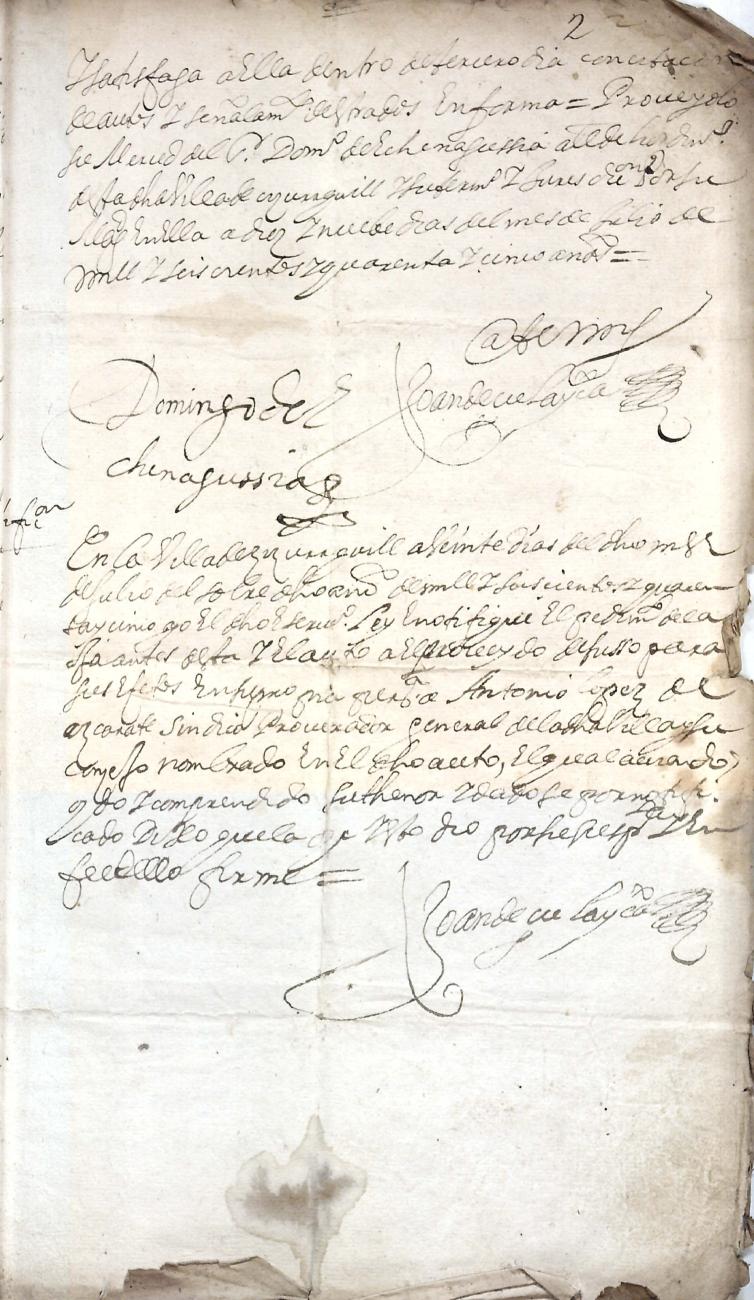 2
Y satisfaga a Ella dentro de tercero dia con citacion
de autos Y señalamto de estrados En forma = Proveyolo
su Merced del Sr. Domo de Echenagussia alcde hordino
desta dha Villa de Y su termo Y jures don por su
Magd En ella a diez Y nuebe dias del mes de Jullio de
mill Y seiscientos y quarenta Y cinco años =
Ante my
Domingo de E
chenagussia
Joan de
En la Villa de a Veinte dias del dho mes
de Julio del sobre dho año de mill Y seiscientos y quaren
ta y cinco yo El dho Escrivo. Ley E notifique El pedimto de la
oja antes desta Y El auto a El proveydo de susso para
sus Efetos En su mo pia persa a Antonio lopez de
azcarate Sindico Procurador general de la dha Villa y su
conçejo nombrado En El dho auto, El qual aviendo
oydo Y comprendido su thenor Y dadose por notifi
cado Dixo que la oya Y esto dio por su respta Y En
fee dello firme =
Joan de